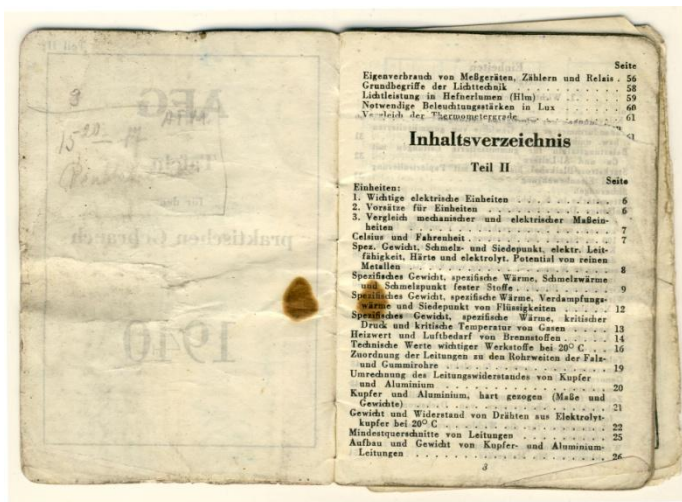 15 20 — 17
Seite
Eigenverbrauch von Meßgeräten, Zählern und Relais . 56
Grundbegriffe der Lichttechnik . . . . . . 58
Lichtleistung in Hefnerlumen (Hlm) . . . . . 59
Notwendige Beleuchtungsstärken in Lux . . . . 60
Vergleich der Thermometergrade . . . . . . 61
Inhaltsverzeichnis
Teil II
Seite
Einheiten:
1. Wichtige elektrische Einheiten . . . . . . . 6
2. Vorsätze für Einheiten . . . . . . . . . 6
3. Vergleich mechanischer und elektrischer Maßein-
heiten . . . . . . . . . . . . . 7
Celsius und Fahrenheit . . . . . . . . . . 7
Spez. Gewicht, Schmelz- und Siedepunkt, elektr. Leit-
fähigkeit, Härte und elektrolyt. Potential von reinen
Metallen . . . . . . . . . . . . 8
Spezifisches Gewicht, spezifische Wärme, Schmelzwärme
und Schmelzpunkt fester Stoffe . . . . . . . 9
Spezifisches Gewicht, spezifische Wärme, Verdampfungs-
wärme und Siedepunkt von Flüssigkeiten . . . . 12
Spezifisches Gewicht, spezifische Wärme, kritischer
Druck und kritische Temperatur von Gasen . . . 13
Heizwert und Luftbedarf von Brennstoffen . . . . 14
Technische Werte wichtiger Werkstoffe bei 20° C . . 16
Zuordnung der Leitungen zu den Rohrweiten der Falz-
und Gummirohre . . . . . . . . . . 19
Umrechnung des Leitungswiderstandes von Kupfer
und Aluminium . . . . . . . . . . . 20
Kupfer und Aluminium, hart gezogen (Maße und
Gewichte) . . . . . . . . . . . . 21
Gewicht und Widerstand von Drähten aus Elektrolyt-
kupfer bei 20° C . . . . . . . . . . 22
Mindestquerschnitte von Leitungen . . . . . . 25
Aufbau und Gewicht von Kupfer- und Aluminium-
Leitungen . . . . . . . . . . . . 26
3